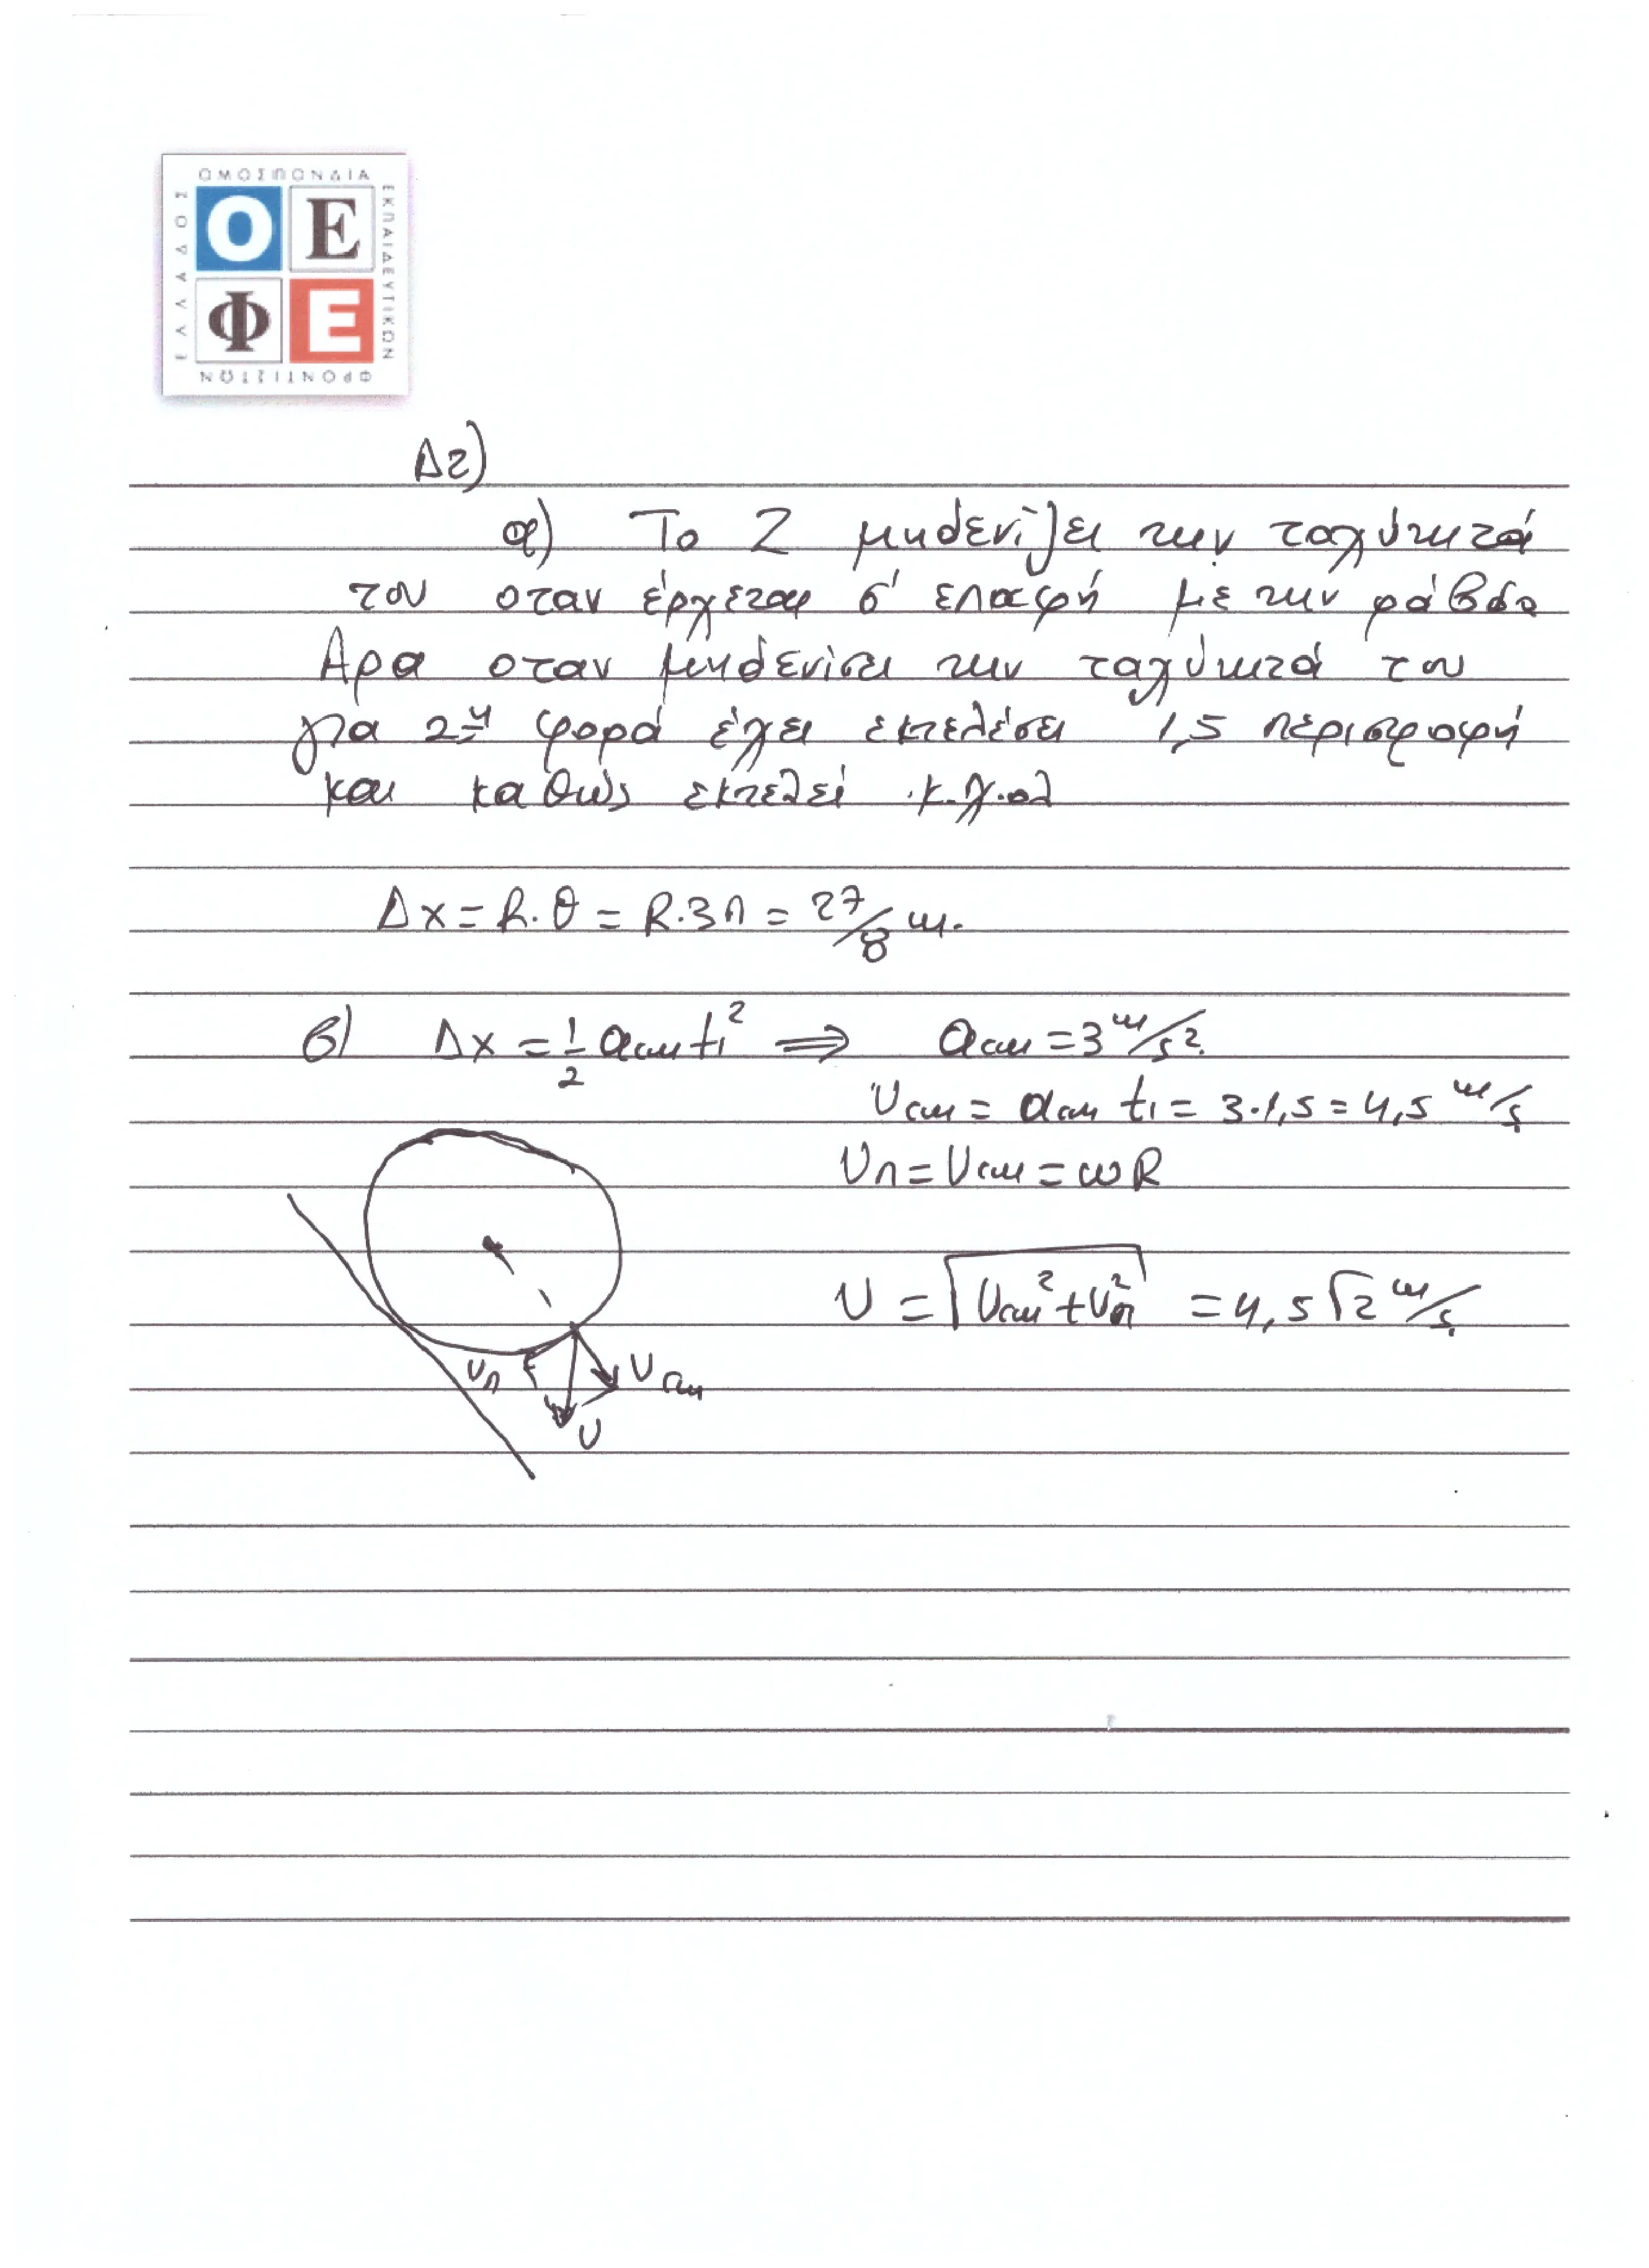 ΟΜΟΣΠΟΝΔΙΑ
ΕΚΠΑΙΔΕΥΤΙΚΩΝ
ΦΡΟΝΤΙΣΤΩΝ
ΕΛΛΑΔΟΣ
Ο Ε
Φ Ε
Δ2)
α) Το Ζ μηδενίζει την ταχύτητά
του οταν έρχεται σ' επαφή με την ράβδο
Αρα οταν μηδενίσει την ταχύτητά του
για 2η φορά έχει εκτελέσει 1,5 περιστροφή
και καθώς εκτελεί κ.χ.ολ
Δx = R·θ = R·3π = 27/8 m.
β) Δx = 1/2 acm t1² ⇒ acm = 3 m/s².
υcm = acm t1 = 3·1,5 = 4,5 m/s
υπ = υcm = ωR
υ = √(υcm² + υπ²) = 4,5√2 m/s
υπ υcm
υ